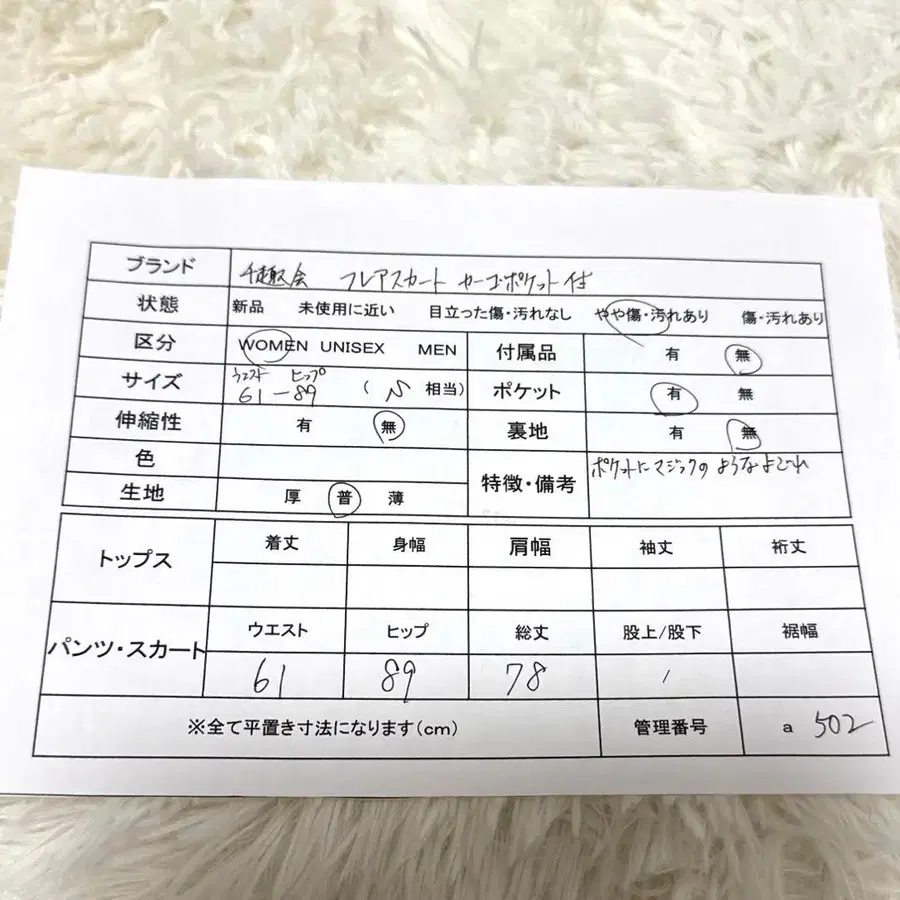 ブランド 千趣会 フレアスカート カーゴポケット付
状態 新品 未使用に近い 目立った傷・汚れなし やや傷・汚れあり 傷・汚れあり
区分 WOMEN UNISEX MEN 付属品 有 無
サイズ ウエスト ヒップ 61-89 ( 相当) ポケット 有 無
伸縮性 有 無 裏地 有 無
色
生地 厚 普 薄 特徴・備考 ポケットにマジックのようなよごれ
トップス 着丈 身幅 肩幅 袖丈 裄丈
パンツ・スカート ウエスト ヒップ 総丈 股上/股下 裾幅
61 89 78 /
※全て平置き寸法になります(cm) 管理番号 a 502